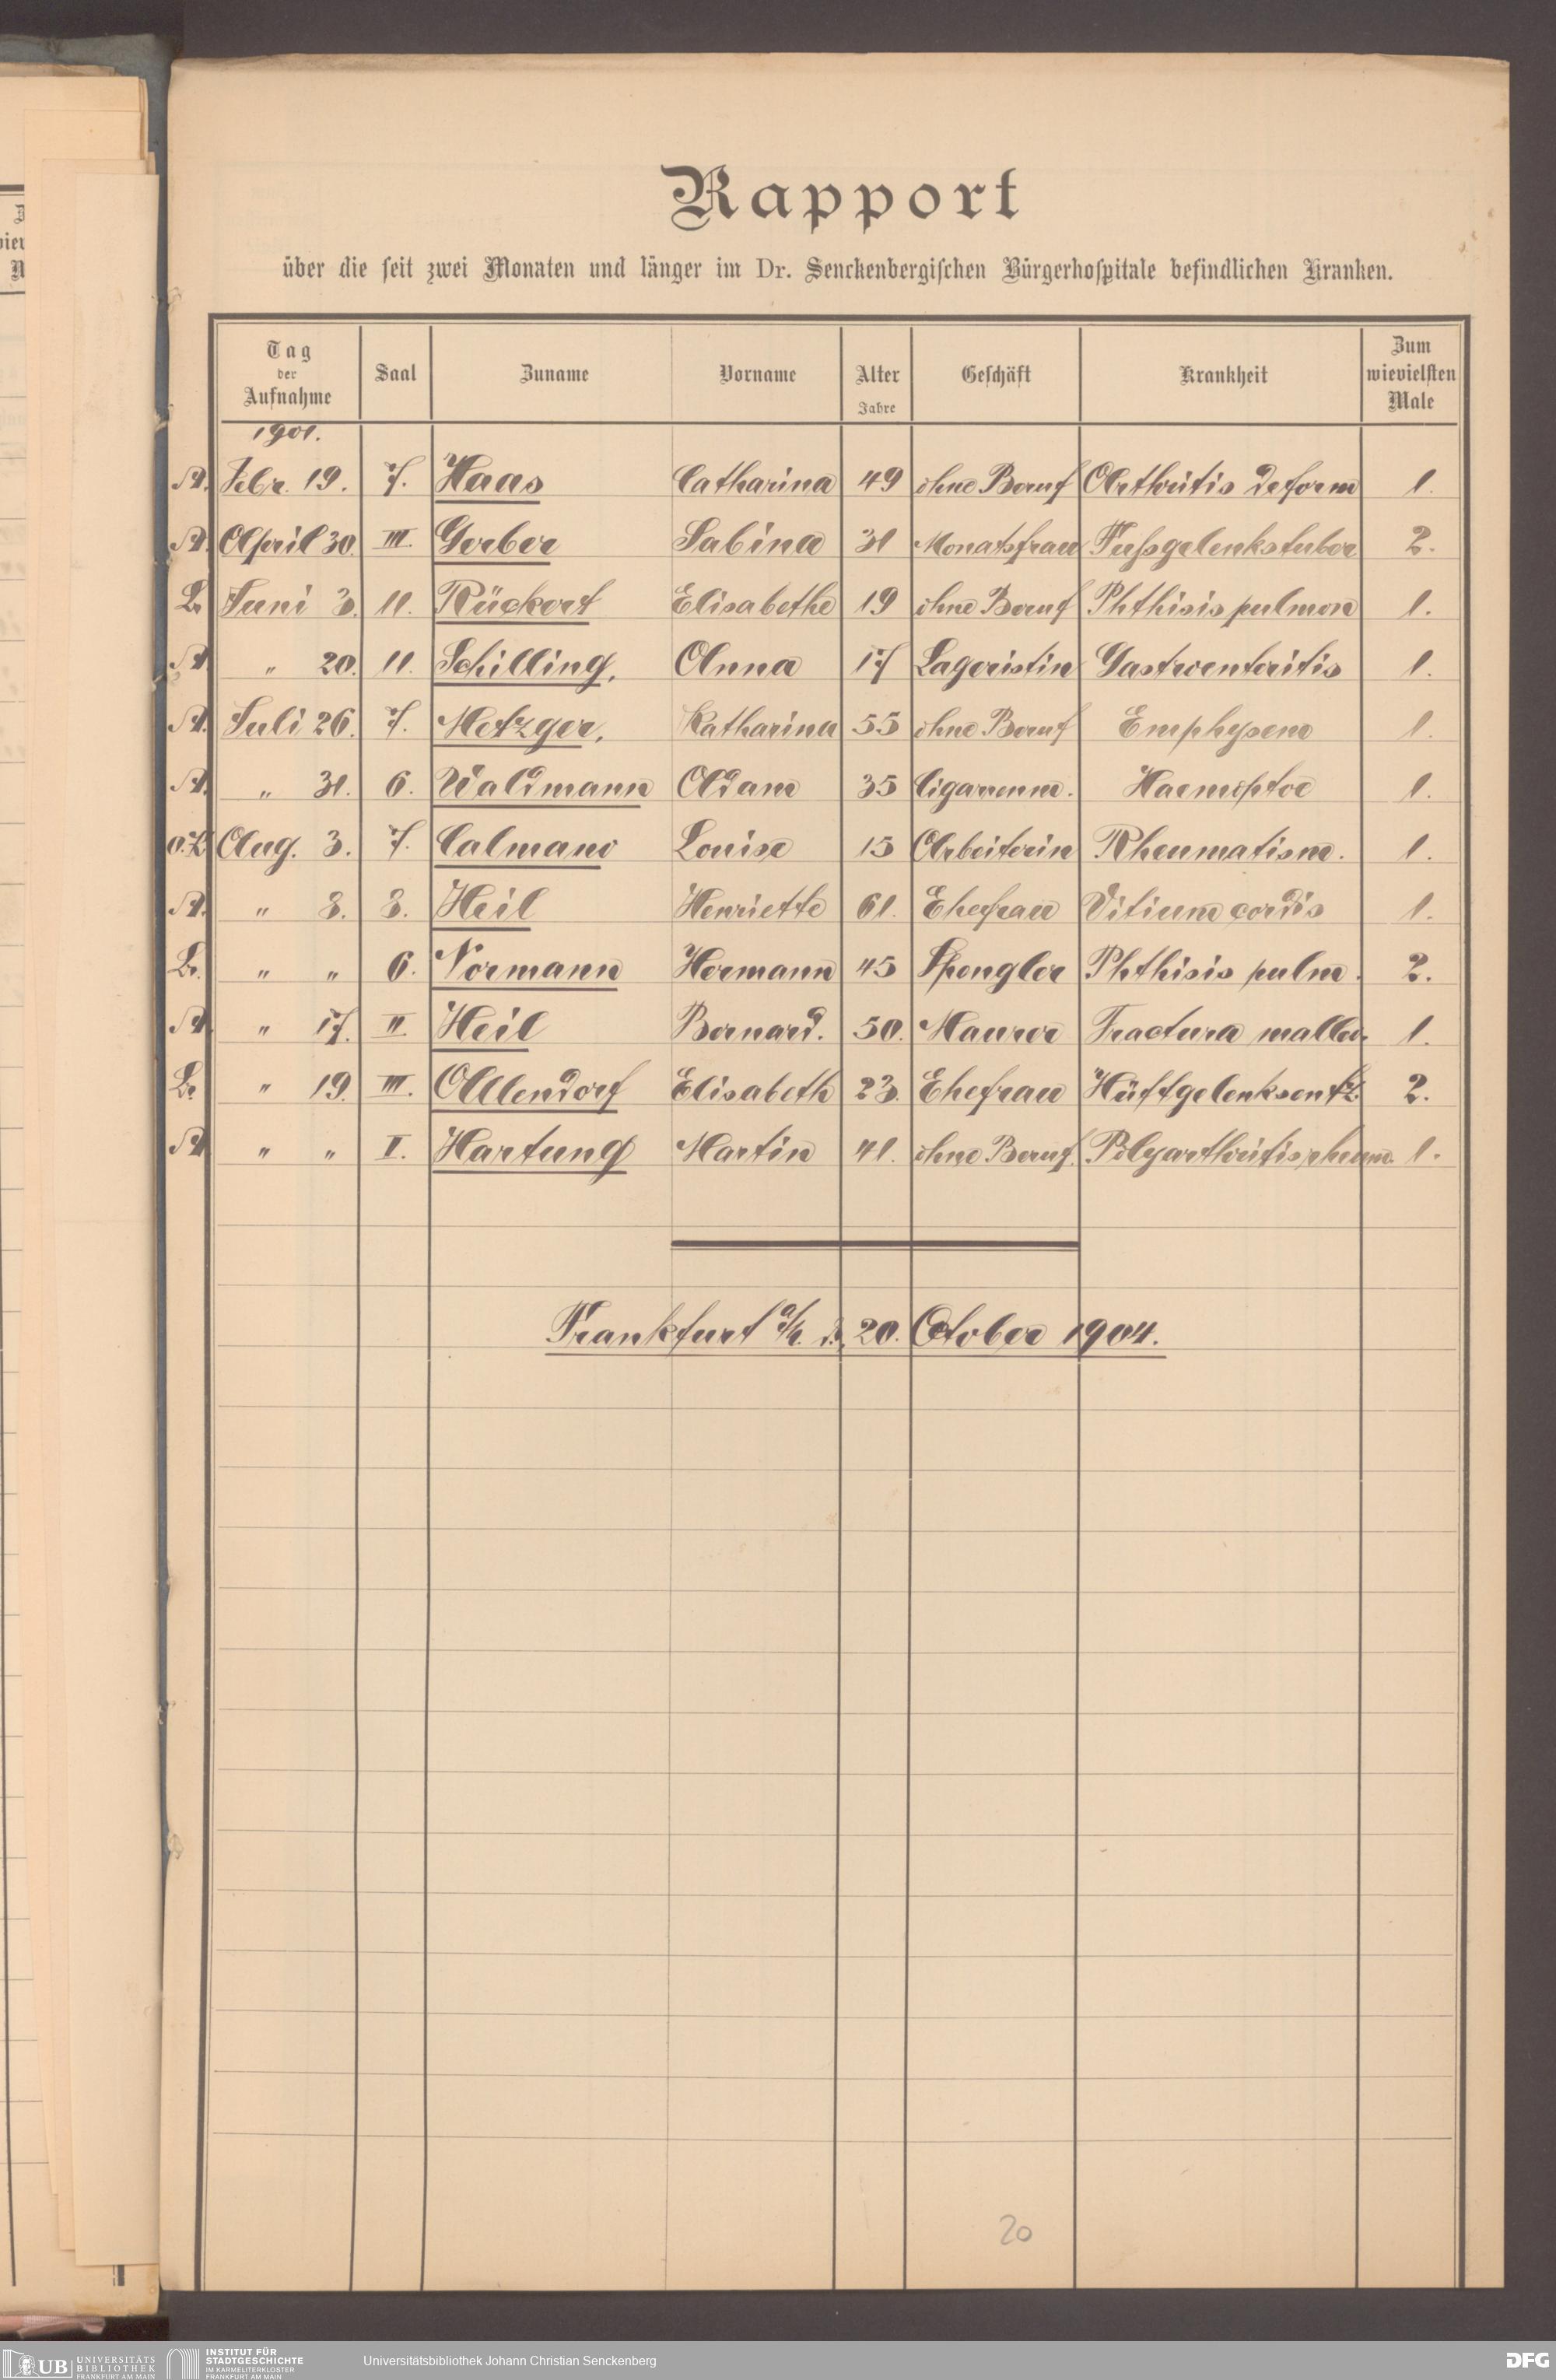 Rapport
über die seit zwei Monaten und länger im Dr. Senckenbergischen Bürgerhospitale befindlichen Kranken.
Tag der Aufnahme Saal Zuname Vorname Alter Jahre Geschäft Krankheit Zum wievielsten Male
1901.
A. Febr. 19. 7. Haas Catharina 49 ohne Beruf Arthritis deform 1.
A. April 30 III. Gerber Sabina 31 Monatsfrau Fussgelenkstuber 2.
L. Juni 3. 11. Rückert Elisabethe 19 ohne Beruf Phthisis pulmon 1.
A " 20. 11. Schilling, Anna 17 Lageristin Gastroenteritis 1.
A. Juli 26. 7. Metzger, Katharina 55 ohne Beruf Emphysem 1.
A. " 31. 6. Waldmann Adam 35 Cigarrenm. Haemoptoe 1.
Aug. 3. 7. Calmano Louise 15 Arbeiterin Rheumatism. 1.
A. " 3. 3. Heil Henriette 61. Ehefrau Vitium cordis 1.
L. " " 6. Normann Hermann 45 Spengler Phthisis pulm. 2.
A. " 17. II. Heil Bernard. 50. Maurer Fractura malleo. 1.
L. " 19. III. Allendorf Elisabeth 23. Ehefrau Hüftgelenksentz. 2.
A " " I. Hartung Martin 41. ohne Beruf. Polyarthritis rheum. 1.
Frankfurt a/M. d. 20. October 1901.
20
UB UNIVERSITÄTS BIBLIOTHEK FRANKFURT AM MAIN
INSTITUT FÜR STADTGESCHICHTE IM KARMELITERKLOSTER FRANKFURT AM MAIN
Universitätsbibliothek Johann Christian Senckenberg
DFG